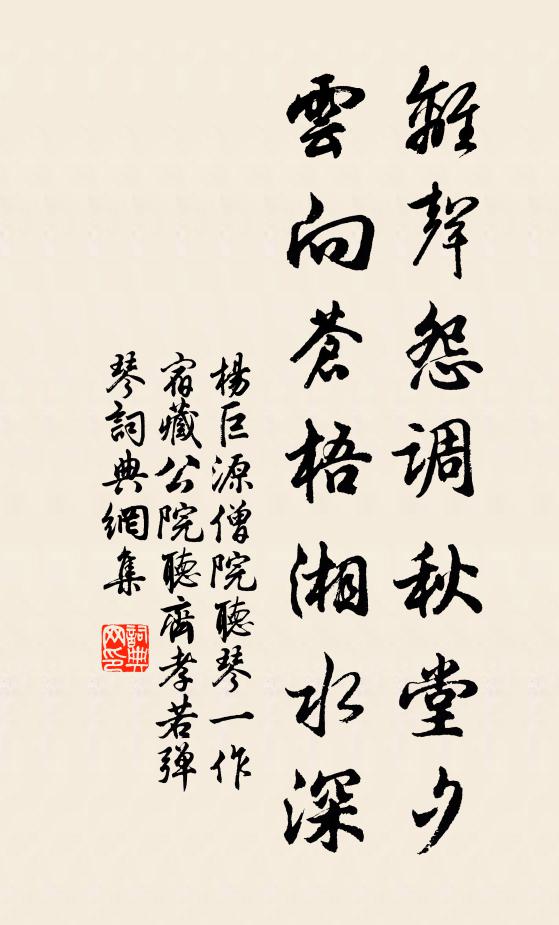 離聲怨調秋堂夕
雲向蒼梧湘水深
楊巨源僧院聽琴一作
宿藏公院聽齊孝若彈
琴詞典網集
詞典
网印